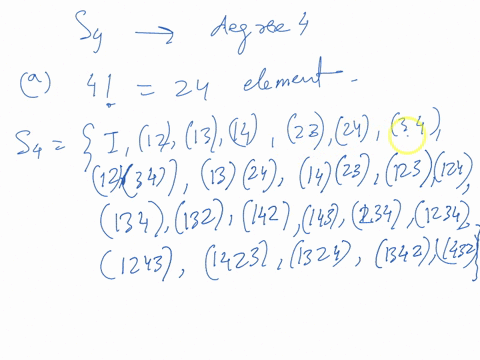 S4 → degree 4
(a) 4! = 24 element.
S4 = { I, (12), (13), (14), (23), (24), (34),
(12)(34), (13)(24), (14)(23), (123), (124),
(134), (132), (142), (143), (234), (1234),
(1243), (1423), (1324), (1342), (1432) }